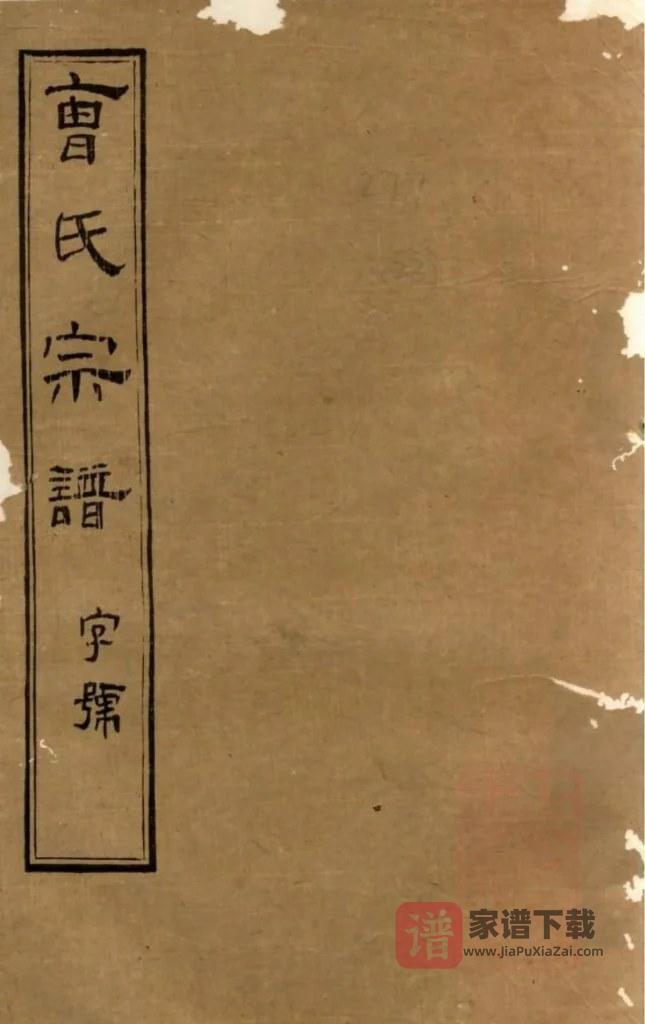 曺氏宗譜 字號
277
谱 家谱下载
www.JiaPuXiaZai.com